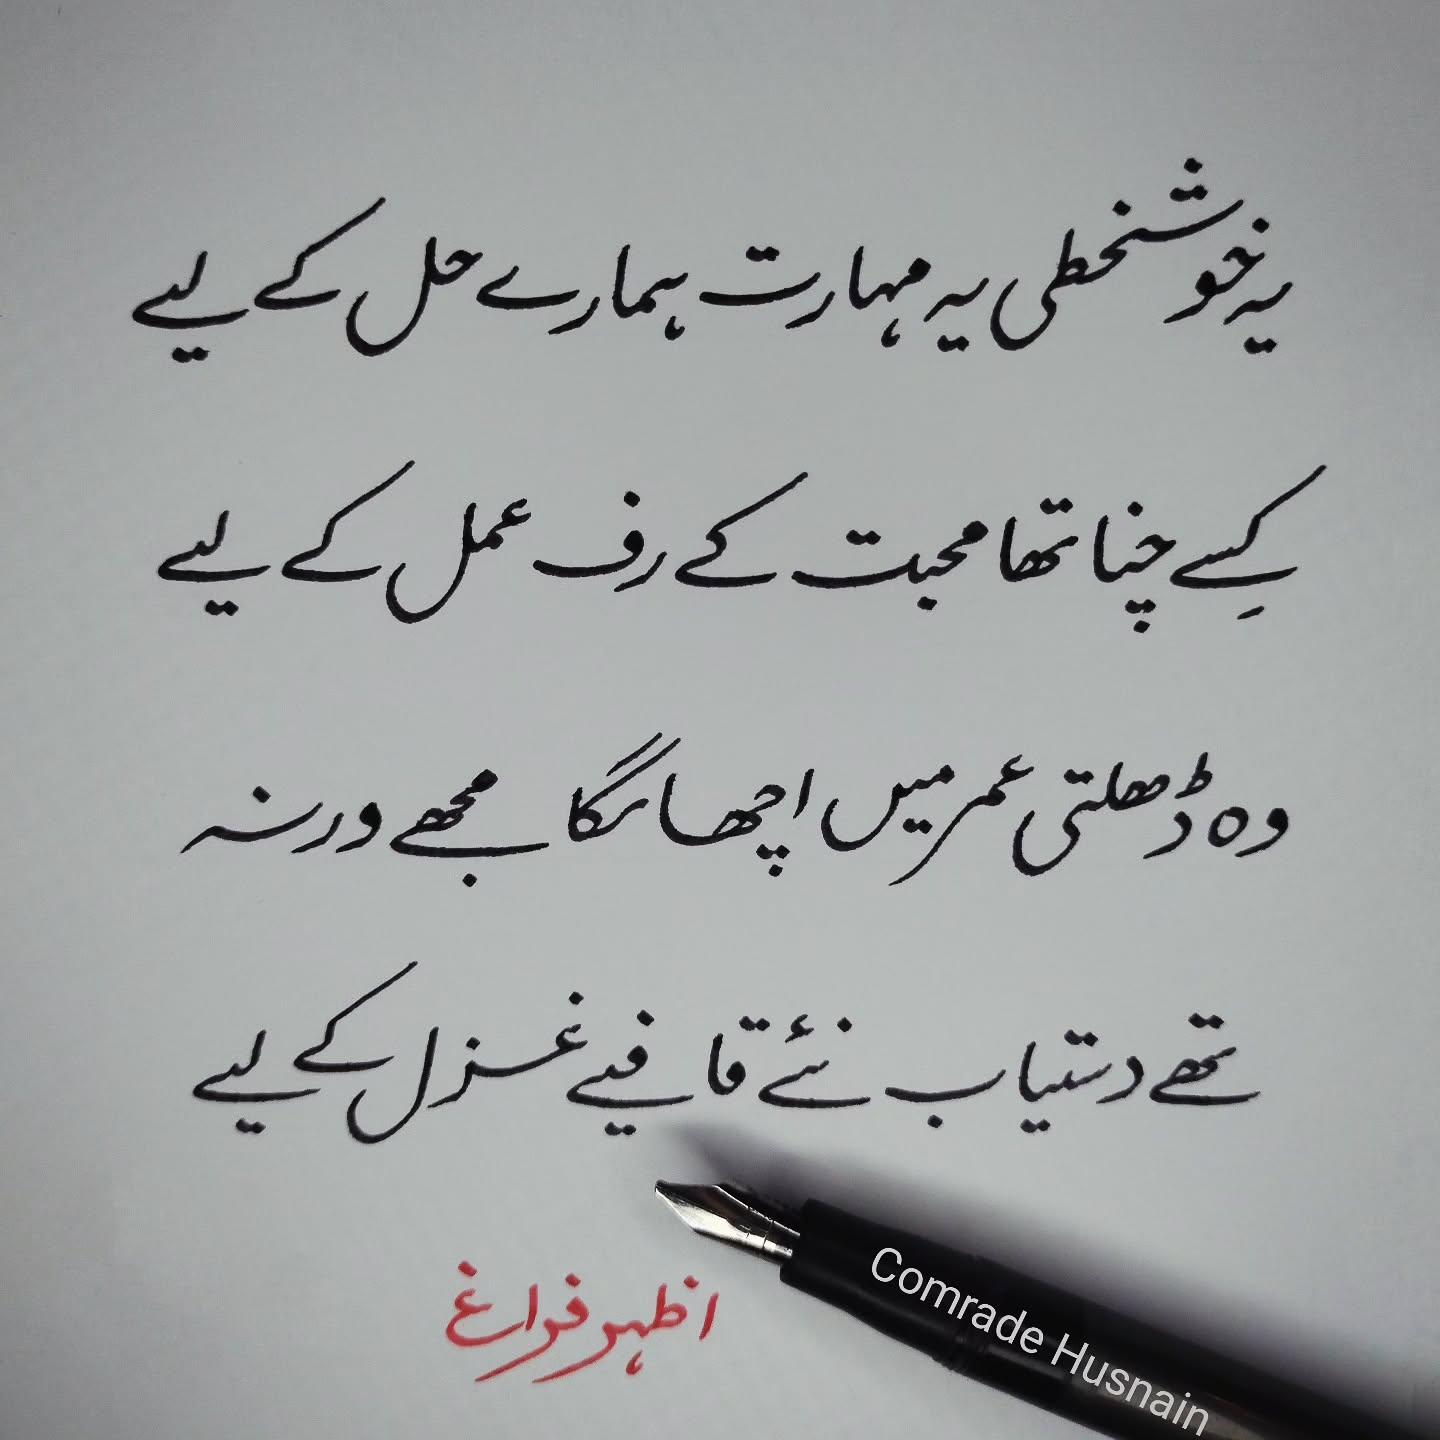 یہ خوشخطی یہ مہارت ہمارے حل کے لیے
کِسے چننا تھا محبت کے رف عمل کے لیے
وہ ڈھلتی عمر میں اچھا لگا مجھے ورنہ
تھے دستیاب نئے قافیے غزل کے لیے
اظہر فراغ
Comrade Husnain